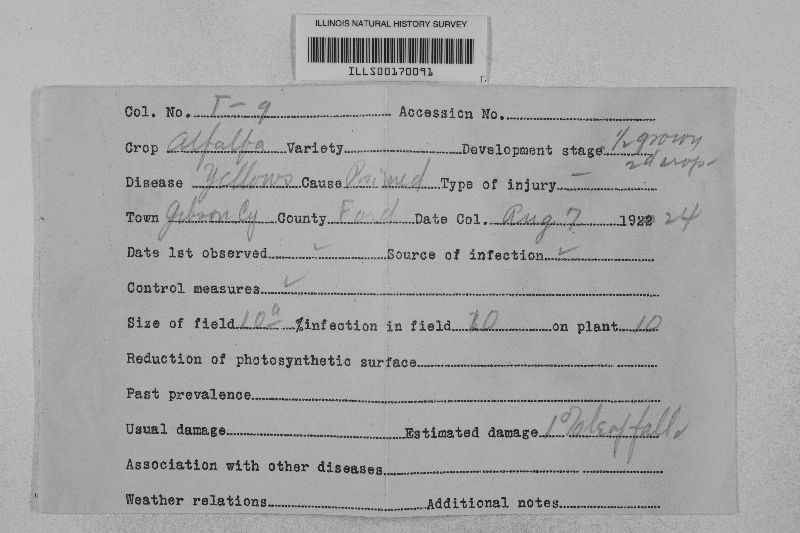 ILLINOIS NATURAL HISTORY SURVEY
ILLS00170091
Col. No. T-9 Accession No.
Crop Alfalfa Variety Development stage 1/2 grown
2d crop
Disease Yellows Cause Type of injury -
Town Gibson Cy County Ford Date Col. Aug 7 1922 24
Date 1st observed ✓ Source of infection ✓
Control measures ✓
Size of field 10a %infection in field 10 on plant 10
Reduction of photosynthetic surface
Past prevalence
Usual damage Estimated damage 1% leaf fall
Association with other diseases
Weather relations Additional notes